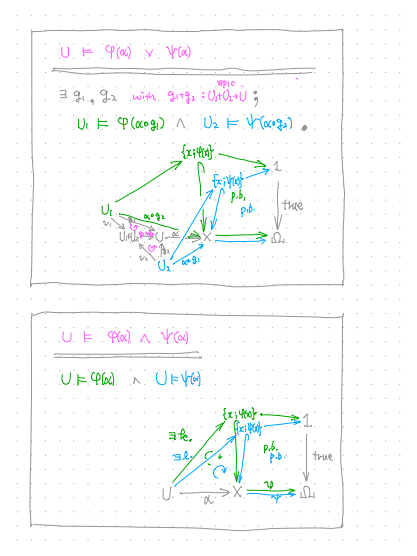 U ⊨ φ(α) ∨ ψ(α)
∃ g₁, g₂ with g₁+g₂ : U₁+U₂→U epic ;
U₁ ⊨ φ(α∘g₁) ∧ U₂ ⊨ ψ(α∘g₂) .
{x;φ(x)}
{x;ψ(x)} 1
p.b.
p.b.
true
U₁
α∘g₂
U₁+U₂ U α X Ω
U₂ α∘g₁
U ⊨ φ(α) ∧ ψ(α)
U ⊨ φ(α) ∧ U ⊨ ψ(α)
{x;φ(x)} 1
{x;ψ(x)}
∃k.
∃l.
p.b.
p.b.
true
U α X φ Ω
ψ